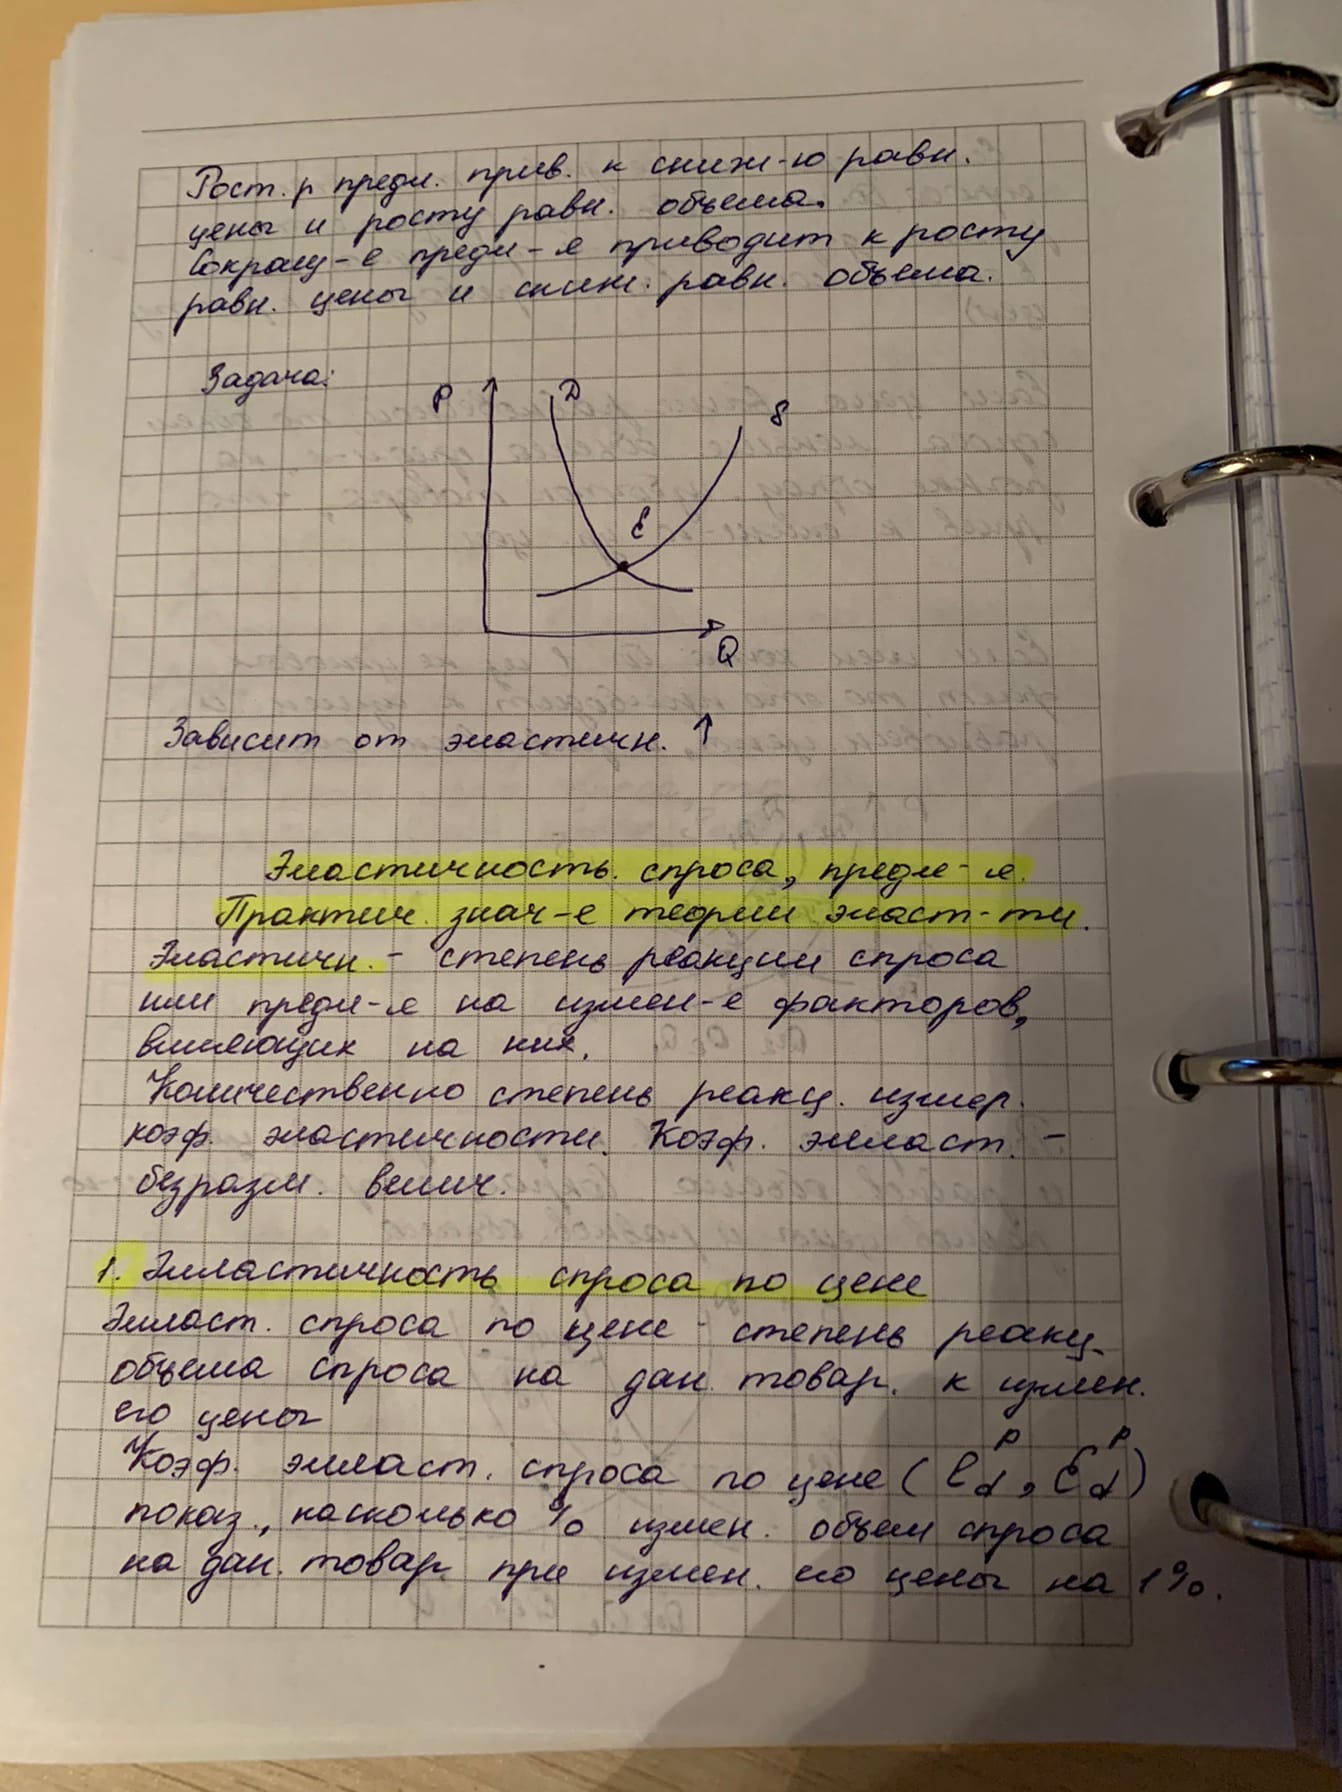 Рост. р предл. прив. к сниж-ю равн.
цены и росту равн. объема.
Сокращ-е предл-я приводит к росту
равн. цены и сниж. равн. объема.
Задача:
P
D
S
E
Q
Зависит от эластичн. ↑
Эластичность спроса, предл-я.
Практич. знач-е теории эласт-ти.
Эластичн. - степень реакции спроса
или предл-я на измен-е факторов,
влияющих на них.
Количественно степень реакц. измер.
коэф. эластичности. Коэф. элласт. -
безразм. велич.
1. Элластичность спроса по цене
Элласт. спроса по цене - степень реакц.
объема спроса на дан. товар. к измен.
его цены
Коэф. элласт. спроса по цене (e_d^p, E_d^p)
показ., насколько % измен. объем спроса
на дан. товар при измен. его цены на 1%.